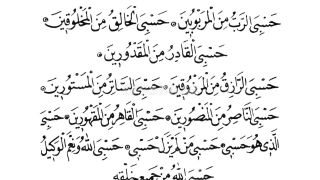 حَسْبِيَ الرَّبُّ مِنَ الْمَرْبُوبِينَ * حَسْبِيَ الْخَالِقُ مِنَ الْمَخْلُوقِينَ *
حَسْبِيَ الْقَادِرُ مِنَ الْمَقْدُورِينَ *
حَسْبِيَ الرَّازِقُ مِنَ الْمَرْزُوقِينَ * حَسْبِيَ السَّاتِرُ مِنَ الْمَسْتُورِينَ *
حَسْبِيَ النَّاصِرُ مِنَ الْمَنْصُورِينَ * حَسْبِيَ الْقَاهِرُ مِنَ الْمَقْهُورِينَ * حَسْبِيَ
الَّذِي هُوَ حَسْبِي * حَسْبِي مَنْ لَمْ يَزَلْ حَسْبِي * حَسْبِيَ اللّٰهُ وَنِعْمَ الْوَكِيلُ
حَسْبِيَ اللّٰهُ مِنْ جَمِيعِ خَلْقِهِ